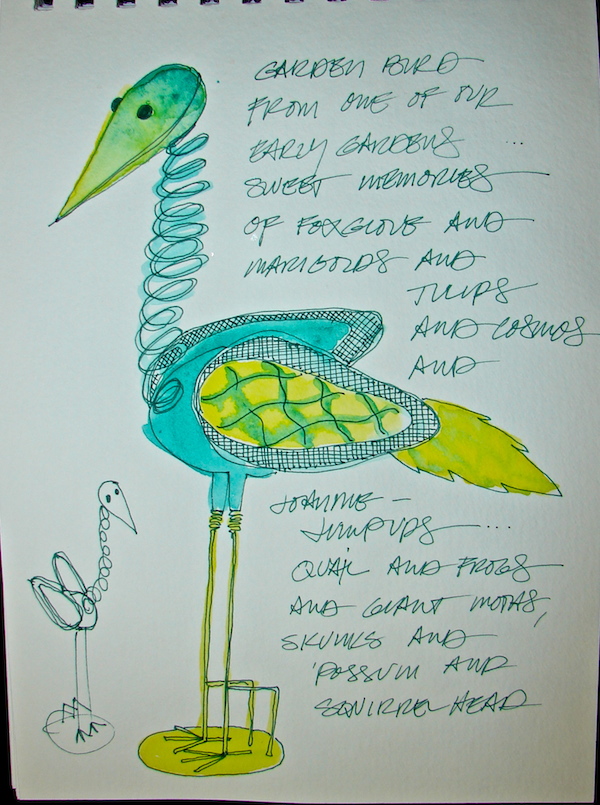 GARDEN BIRD
FROM ONE OF OUR
EARLY GARDENS ...
SWEET MEMORIES
OF FOXGLOVE AND
MARIGOLDS AND
TULIPS
AND COSMOS
AND
JOANNIE -
JUMPUPS ...
QUAIL AND FROGS
AND GIANT MOTHS,
SKUNKS AND
'POSSUM AND
SQUIRREL HEAD